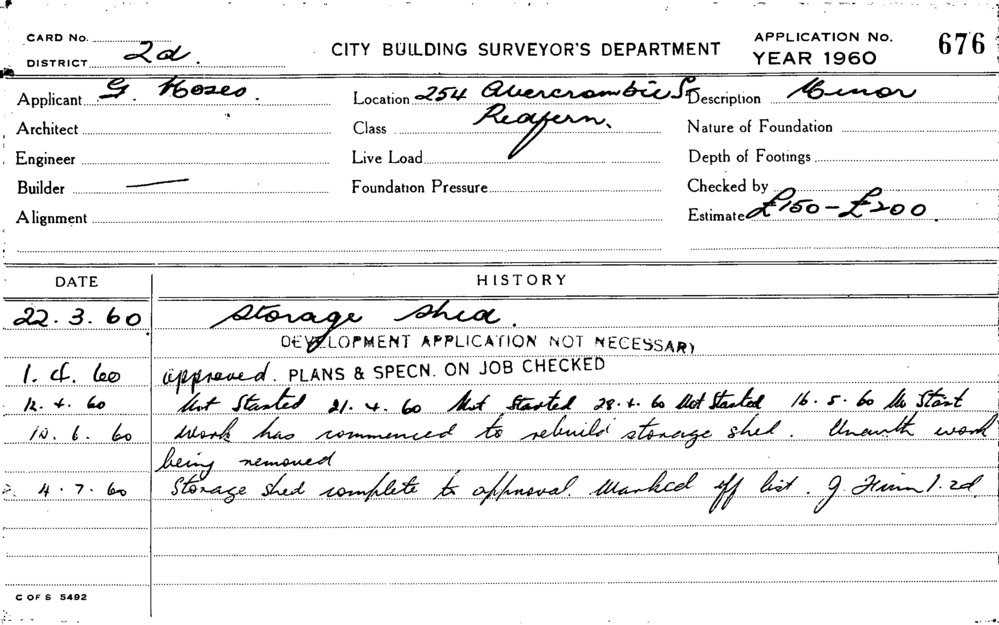 CARD No.
DISTRICT 2d.
CITY BUILDING SURVEYOR'S DEPARTMENT
APPLICATION No. 676
YEAR 1960
Applicant G. Moses.
Location 254 Abercrombie St
Redfern.
Description Minor
Architect
Class
Nature of Foundation
Engineer
Live Load
Depth of Footings
Builder —
Foundation Pressure
Checked by
Alignment
Estimate £150-£200.
DATE HISTORY
22.3.60 Storage Shed.
DEVELOPMENT APPLICATION NOT NECESSARY
1.4.60 approved. PLANS & SPECN. ON JOB CHECKED
12.4.60 Not Started 21.4.60 Not Started 28.4.60 Not Started 16.5.60 No Start
10.6.60 Work has commenced to rebuild storage shed. Unauth work
being removed
4.7.60 Storage shed complete to approval. Marked off list. J. 2d.
C OF S 5492